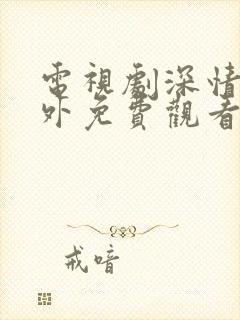 電視劇深情
外免費觀看
戒喑